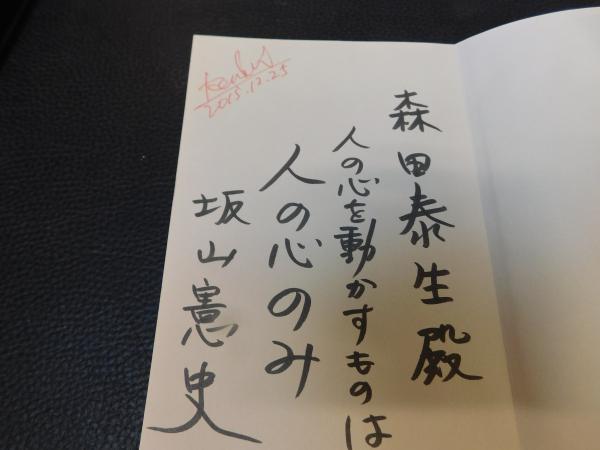 森田泰生殿
人の心を動かすものは
人の心のみ
坂山憲史
2015.12.25